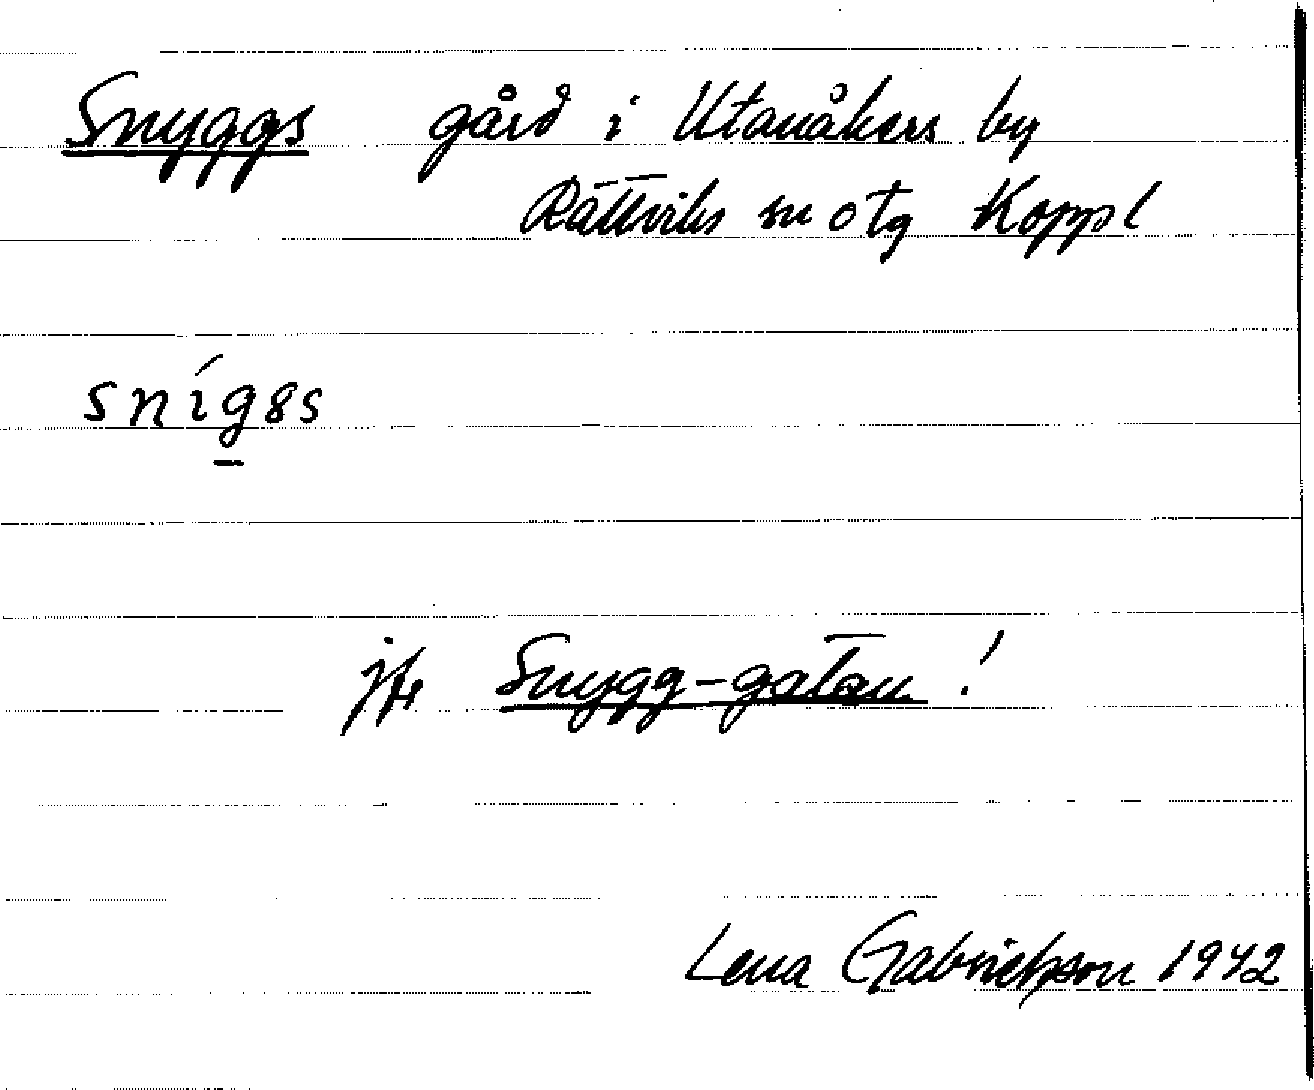 Snyggs gård i Utanåkers by
Rättviks sn o tg Koppl
snígss
jfr Snygg-gatan !
Lena Gabrielsson 1942